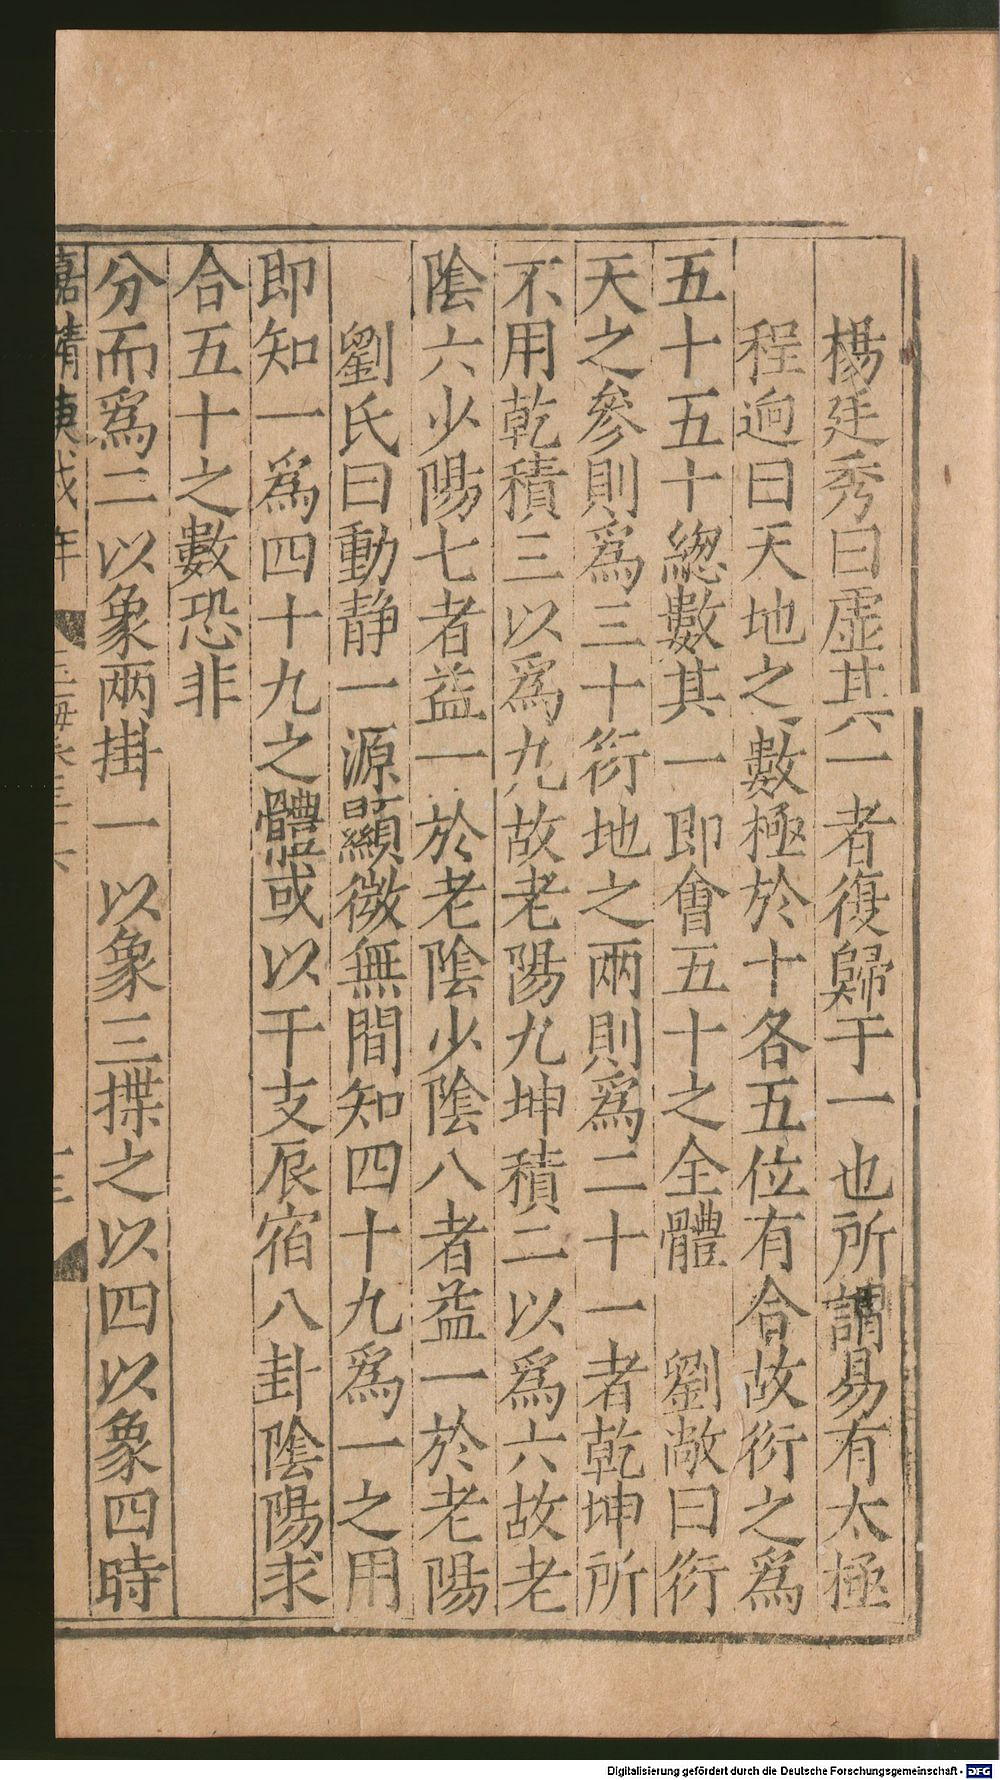 楊廷秀曰虛其一者復歸于一也所謂易有太極
程迥曰天地之數極於十各五位有合故衍之爲
五十五十緫數其一即會五十之全體　劉敞曰衍
天之參則爲三十衍地之兩則爲二十一者乾坤所
不用乾積三以爲九故老陽九坤積二以爲六故老
陰六少陽七者益一於老陰少陰八者益一於老陽
劉氏曰動静一源顯微無間知四十九爲一之用
即知一爲四十九之體或以干支辰宿八卦陰陽求
合五十之數恐非
分而爲二以象兩掛一以象三揲之以四以象四時
嘉靖庚戌年
玉海卷三十六
十三
Digitalisierung gefördert durch die Deutsche Forschungsgemeinschaft - DFG